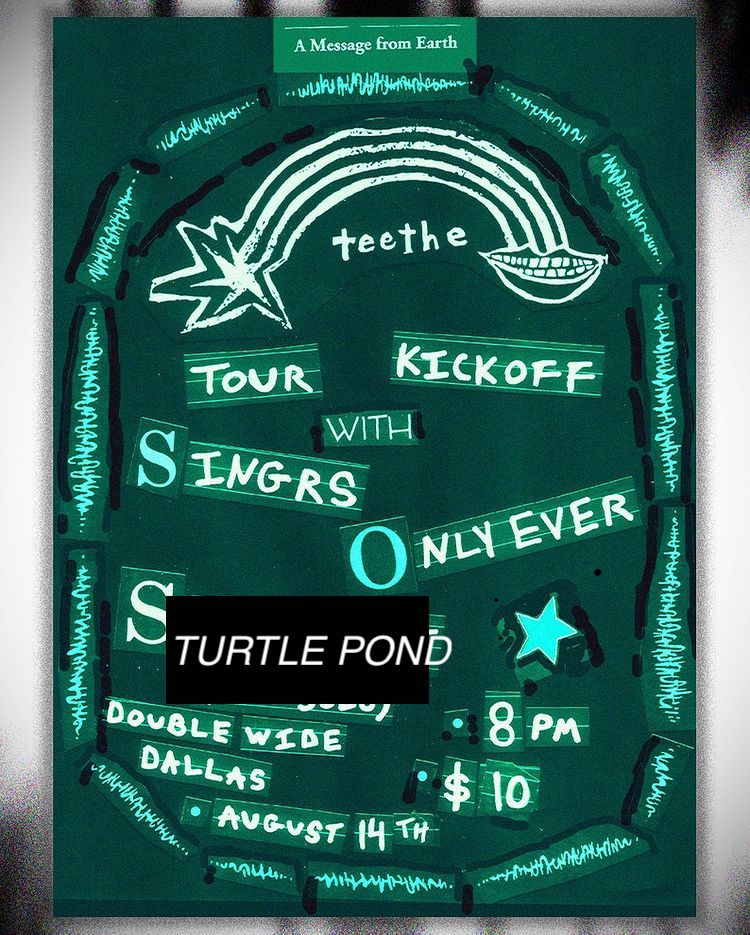 A Message from Earth
teethe
TOUR KICKOFF
WITH
SINGRS
ONLY EVER
S
TURTLE POND
DOUBLE WIDE
8 PM
DALLAS
$ 10
AUGUST 14TH